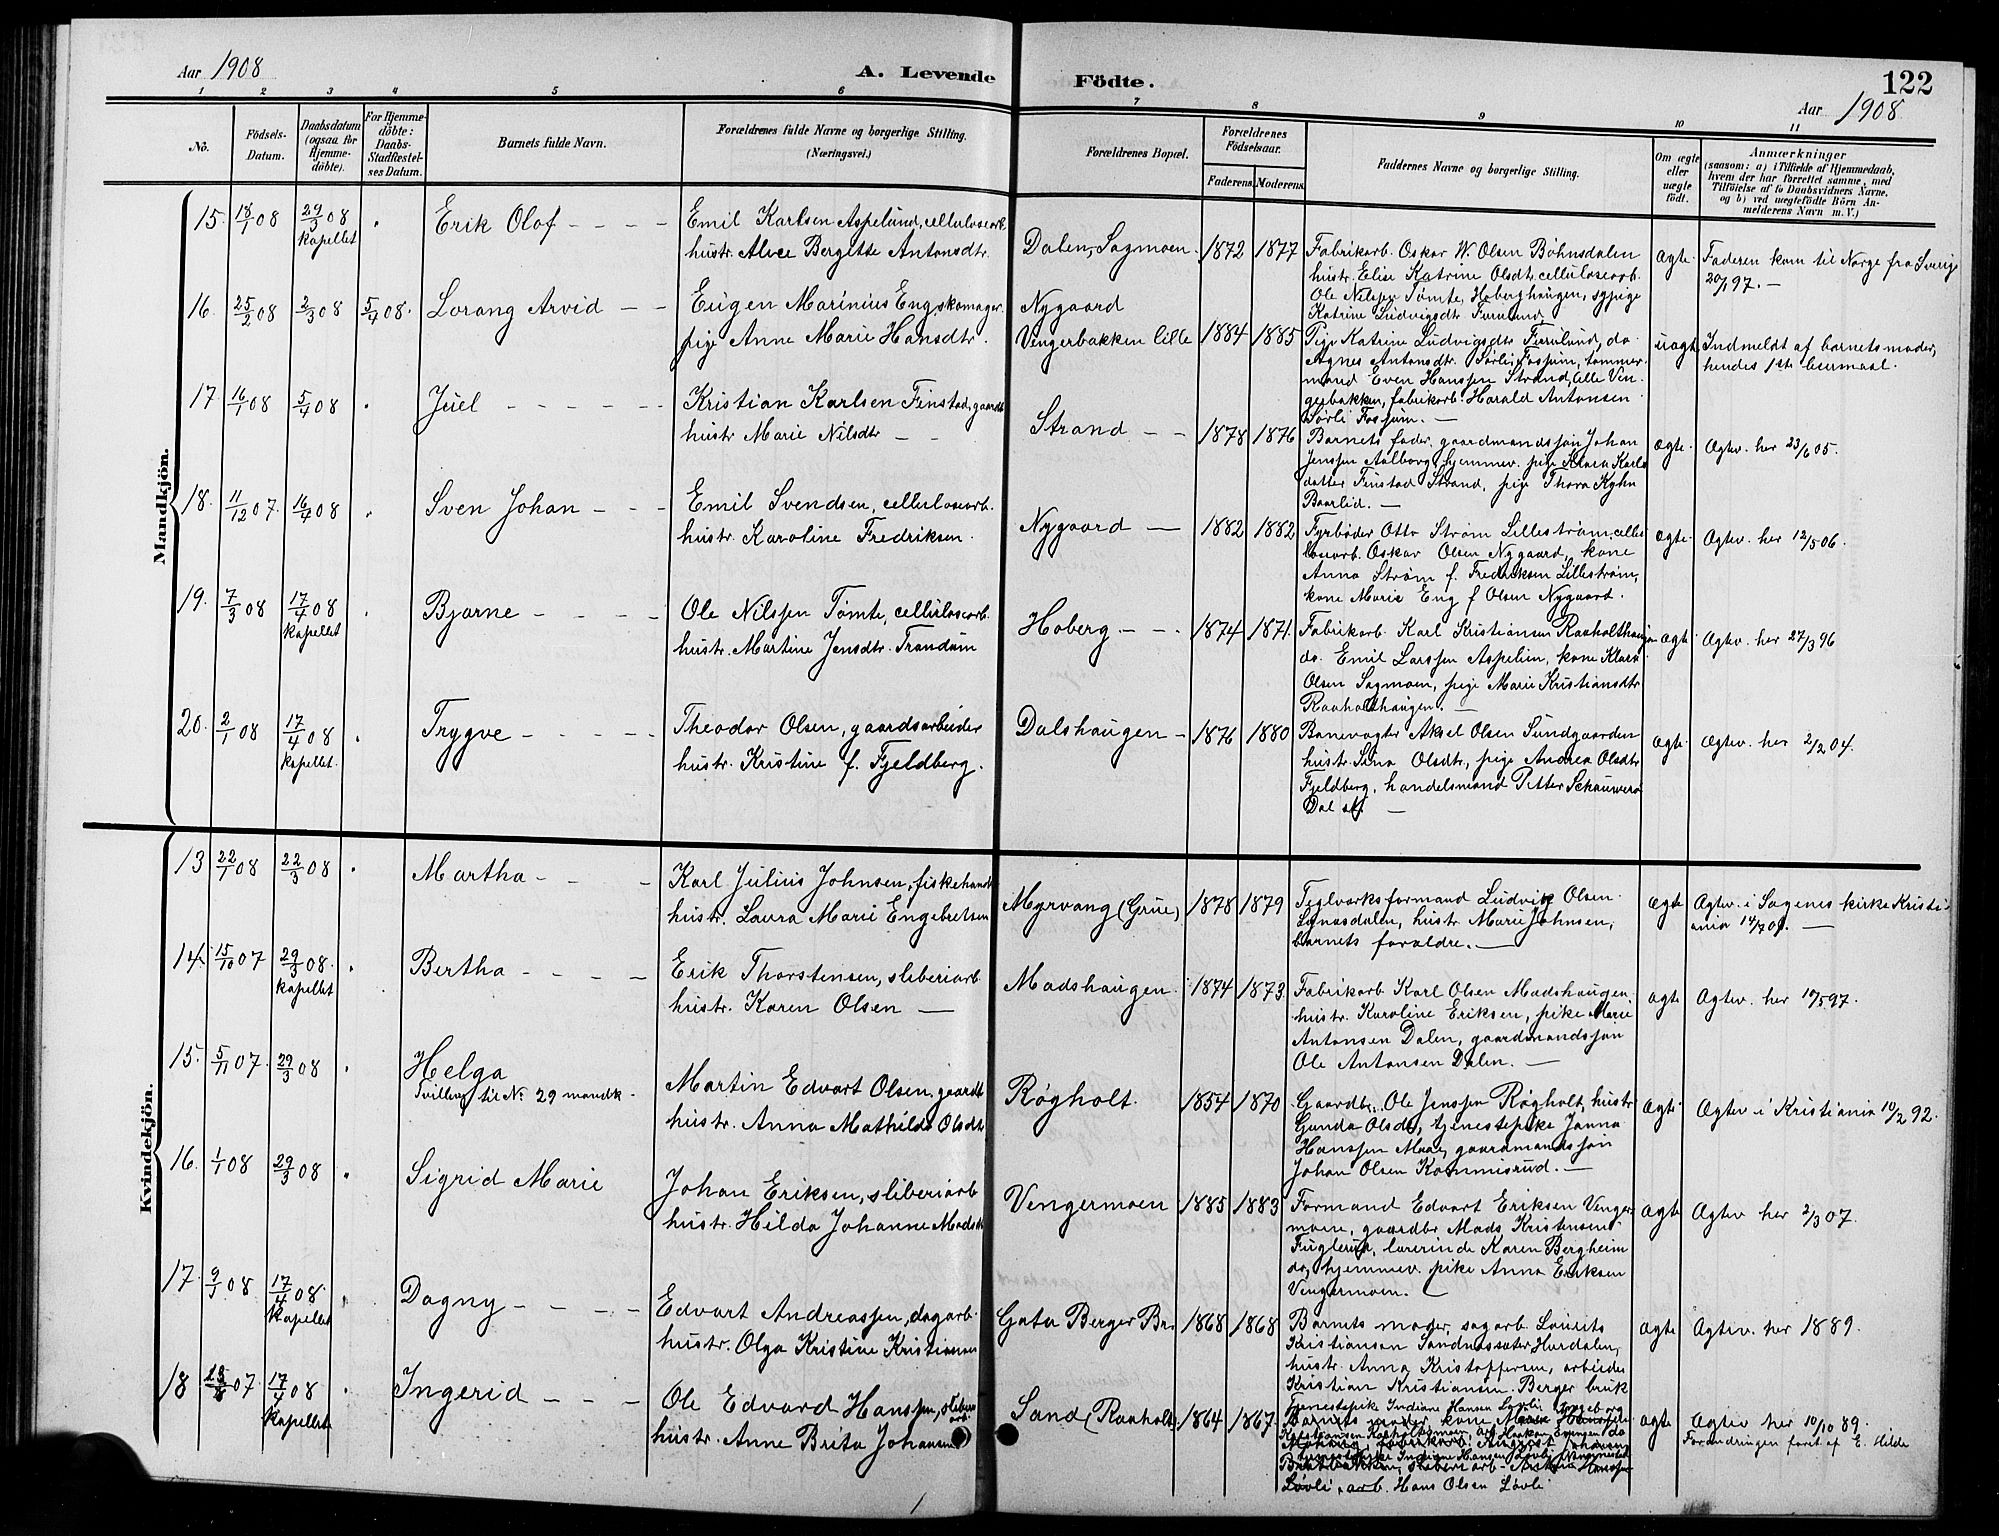 Aar 1908
A. Levende
Födte.
122
Aar 1908
1 2 3 4 5 6 7 8 9 10 11
No.
Födsels-
Datum.
Daabsdatum
(ogsaa for
Hjemme-
döbte).
For Hjemme-
döbte:
Daabs-
Stadfæstel-
ses Datum.
Barnets fulde Navn.
Forældrenes fulde Navne og borgerlige Stilling.
(Næringsvei.)
Forældrenes Bopæl.
Forældrenes
Födselsaar.
Faderens.
Moderens.
Faddernes Navne og borgerlige Stilling.
Om ægte
eller
uægte
födt.
Anmærkninger
(saasom: a) i Tilfælde af Hjemmedaab,
hvem der har forrettet samme, med
Tilföielse af to Daabsvidners Navne,
og b) ved uægtefödte Börn An-
melderens Navn m. V.)
Mandkjön.
15. 18/1 08 29/3 08 Erik Olof
kapellet
Emil Karlsen Aspelund, cellulosearb.
hustr. Alvee Bergitte Antonsdtr.
Dalen, Sagmoen. 1872 1877
Fabrikarb. Oskar W. Olsen Bøhnsdalen
hustr. Elise Katrine Olsdtr. cellulosearb.
Ole Nilssen Tømte, Hoberghaugen, sypige
Katrine Ludvigsdtr Furulund.
ægte. Faderen kom til Norge fra Sverige
20/1 97.
16. 25/2 08 2/3 08 5/4 08. Lorang Arvid
Eugen Marinius Eng, skomager
pige Anne Marie Hansdtr.
Nygaard
Vengerbakken lille 1884 1885
Pige Katrine Ludvigsdtr Furulund, do
Agnes Antonsdtr. Sørli, Fossum, tømmer-
mand Even Hanssen Strand, lille Ven-
gerbakken, fabrikarb. Harald Antonsen
Sørli Fossum.
uægte Indmeldt af barnets moder,
hendes 1ste leiermaal.
17 16/1 08 5/4 08 Juel
Kristian Karlsen Finstad, gaardb
hustr. Marie Nilsdtr
Strand 1878 1876
Barnets fader, gaardmandssøn Johan
Jenssen Aalborg, hjemmev. pige Klara Karls
datter Finstad Strand, pige Thora Kyhn
Baarlid.
ægte. Ægtev. her 23/6 05.
18. 11/12 07. 16/4 08 Sven Johan
Emil Svendsen, cellulosearb.
hustr. Karoline Fredriksen.
Nygaard 1882 1882
Fyrbøder Otto Strøm Lillestrøm, cellu
losearb. Oskar Olsen Nygaard, kone
Anna Strøm f. Fredriksen Lillestrøm,
kone Marie Eng f Olsen Nygaard.
ægte. Ægtev. her 12/5 06.
19. 7/3 08 17/4 08 Bjarne
kapellet
Ole Nilssen Tømte, cellulosearb.
hustr. Martine Jensdtr. Trandum
Hoberg 1874 1871.
Fabrikarb. Karl Kristiansen Raaholthaugen
do. Emil Larssen Aspelien, kone Klara
Olsen Sagmoen, pige Marie Kristiansdtr
Raaholthaugen.
ægte Ægtev. her 27/3 96
20. 2/1 08 17/4 08 Trygve
kapellet.
Theodor Olsen, gaardsarbeider
hustr. Kristine f. Fjeldberg.
Dalshaugen 1876 1880
Banevogter Aksel Olsen Sundgaarden
hustr. Sina Olsdtr, pige Andrea Olsdtr
Fjeldberg, handelsmand Petter Schauwero
Dal st.
ægte. Ægtev. her 2/2 04.
Kvindekjön.
13 22/1 08 22/3 08 Martha
Karl Julius Johnsen, fiskehandl
hustr. Laura Marie Engebretsen
Myrvang (Grue) 1878 1879
Teglverksformand Ludvig Olsen
Lynæsdalen, hustr Marie Johnsen,
barnets forældre.
ægte Ægtev. i Sagenes kirke Kristi-
ania
14. 15/10 07 29/3 08. Bertha
kapellet
Erik Thorstensen, sliberiarb
hustr. Karen Olsen
Madshaugen 1874 1873
Fabrikarb Karl Olsen Madshaugen
hustr. Karoline Eriksen, pike Marie
Antonsen Dalen, gaardmandssøn
Ole Antonsen Dalen.
ægte Ægtev. her
15. 5/11 07. 29/3 08 Helga
Tvilling til No 29 mandk.
Martin Edvart Olsen, gaardb
hustr. Anna Mathilde Olsdtr
Røgholt. 1854 1870
Gaardbr. Ole Jenssen Røgholt, hustr
Gunda Olsdtr, tjenestepike Janna
Hanssen Mæle, gaardmandssøn
Johan Olsen Kommisrud.
ægte Ægtev i Kristiania 10/2 92.
16. 1/1 08 29/3 08 Sigrid Marie
Johan Eriksen, sliberiarb
hustr. Hilda Johanne Madsdtr
Vengermoen 1885 1883
Formand Edvart Eriksen Venger
moen, gaardbr Mads Kristensen
Fuglerud, lærerinde Karen Bergheim
do, hjemmev. pike Anna Eriksen
Vengermoen.
ægte Ægtev her 2/3 07.
17. 9/1 08 17/4 08. Dagny
kapellet
Edvart Andreassen, dagarb
hustr. Olga Kristine Kristiansen
Gata Berger Br. 1868 1868
Barnets moder, sagarb. Laurits
Kristiansen Sandnessæter Hurdalen,
hustr. Anna Kristoffersen, arbeider
Kristian Kristiansen Berger bruk
ægte Ægtev. her 1889.
18 07 17/4 08 Ingerid
kapellet
Ole Edvard Hanssen, sliberi
arb.
hustr. Anne Brita Johansen
Sand (Raaholt) 1864 1867.
Tjenestepike Indiane Hansen Løvli Ingeborg
Barnets moder, kone
Kristiansen Raaholtmoen, arb Haakon
Løvli, arb. Hans Olsen Løvli
ægte Ægtev her 10/10 89.
Forandringen foret af E. Hilde